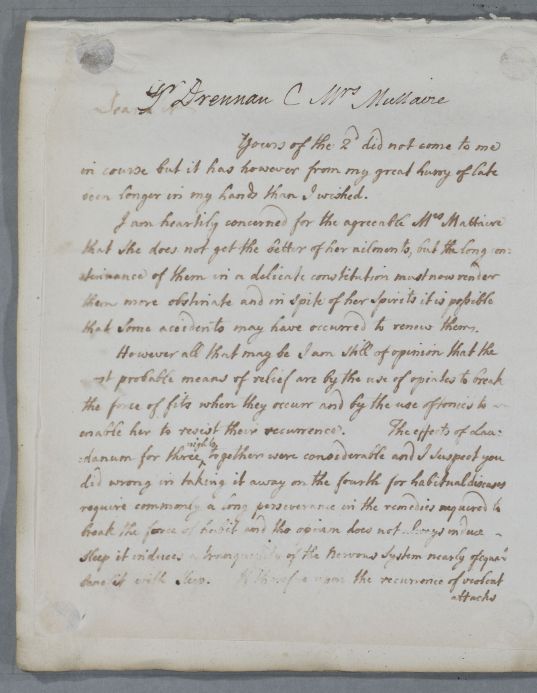 Dr Drennan C Mrs Mattaire
Dear
Yours of the 2d did not come to me
in course but it has however from my great hurry of late
been longer in my hands than I wished.
I am heartily concerned for the agreeable Mrs Mattaire
that she does not get the better of her ailments, but the long con:
:tinuance of them in a delicate constitution must now render
them more obstinate and in spite of her spirits it is possible
that some accidents may have occurred to renew them.
However all that may be I am still of opinion that the
most probable means of relief are by the use of opiates to break
the force of fits when they occurr and by the use of tonics to
enable her to resist their recurrence. The effects of Lau:
:danum for three nights together were considerable and I suspect you
did wrong in taking it away on the fourth for habitual diseases
require commonly a long perseverance in the remedies required to
break the force of habit and tho opium does not always induce
sleep it induces a tranquility of the Nervous System nearly of equal
benefit with sleep. If therefore upon the recurrence of violent
attacks